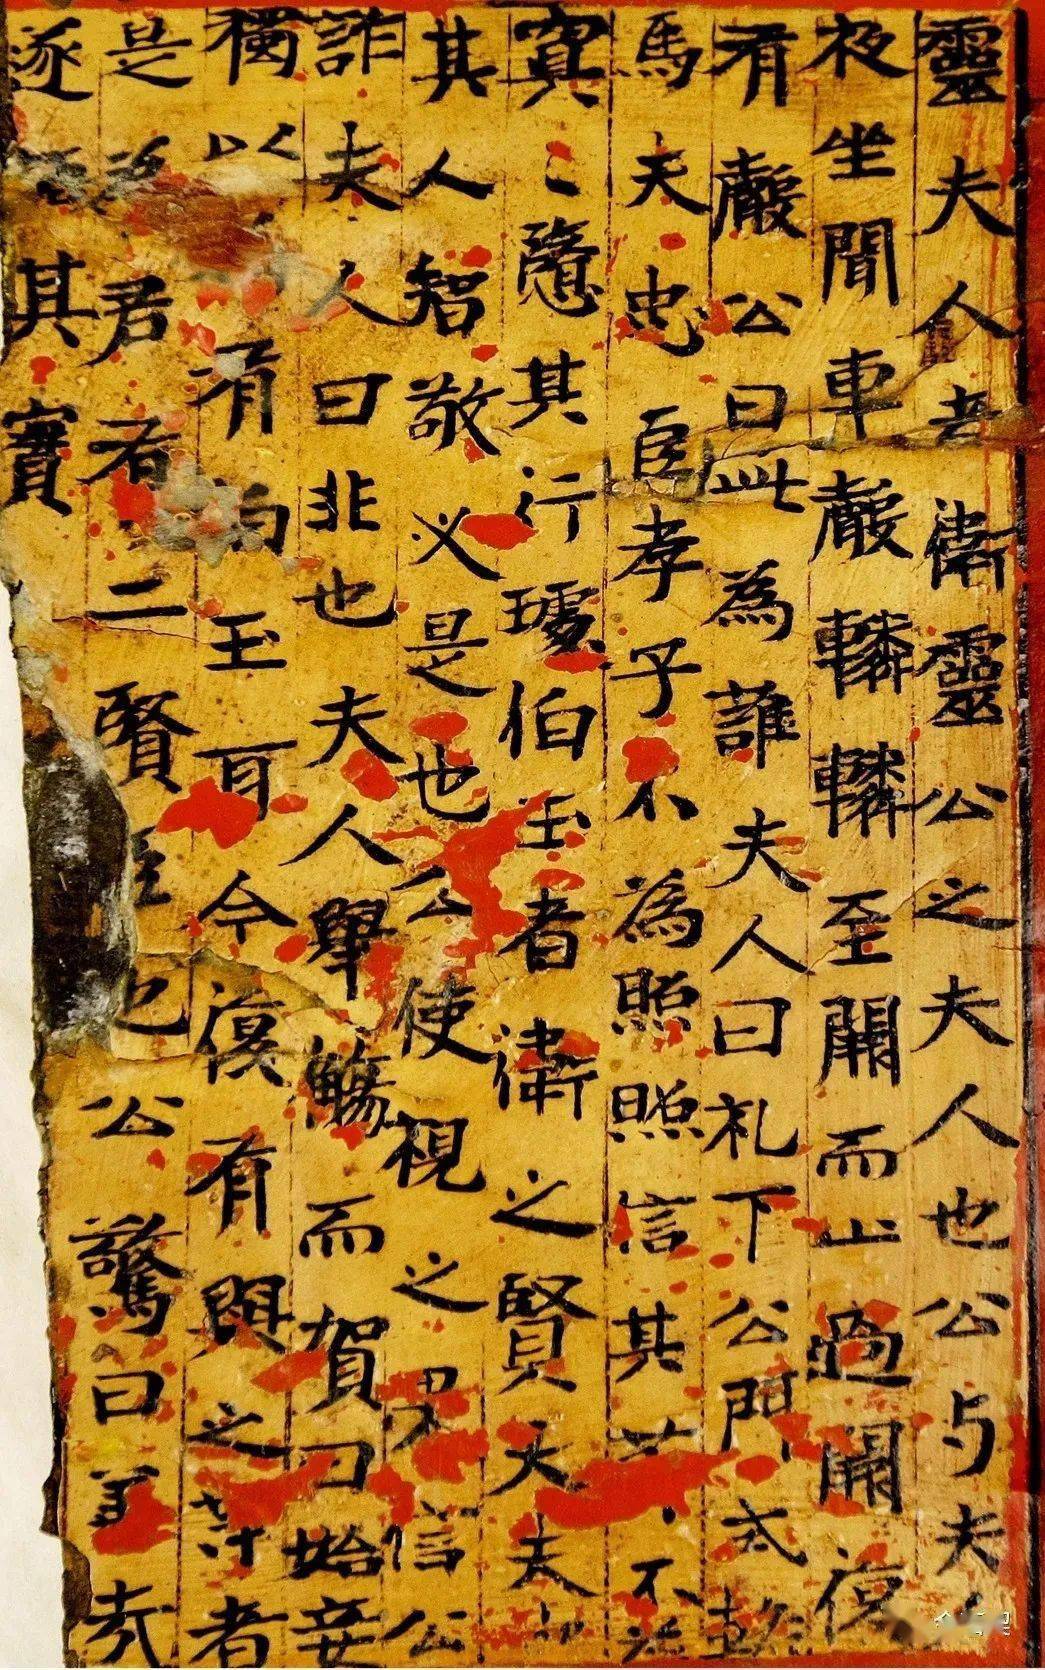 靈夫人者衛靈公之夫人也公与夫人
夜坐聞車聲轔轔至闕而止過闕復
有聲公曰此為誰夫人曰礼下公門式
馬夫忠臣孝子不為照照信其不為
冥〻憜其行璩伯玉者衛之賢大夫
其人智敬必是也公使視之果信公
詐夫人曰非也夫人舉觴而賀曰始妾
獨以有伯玉耳今復有與之等者
是君者二賢臣也公驚曰善哉
遂其實